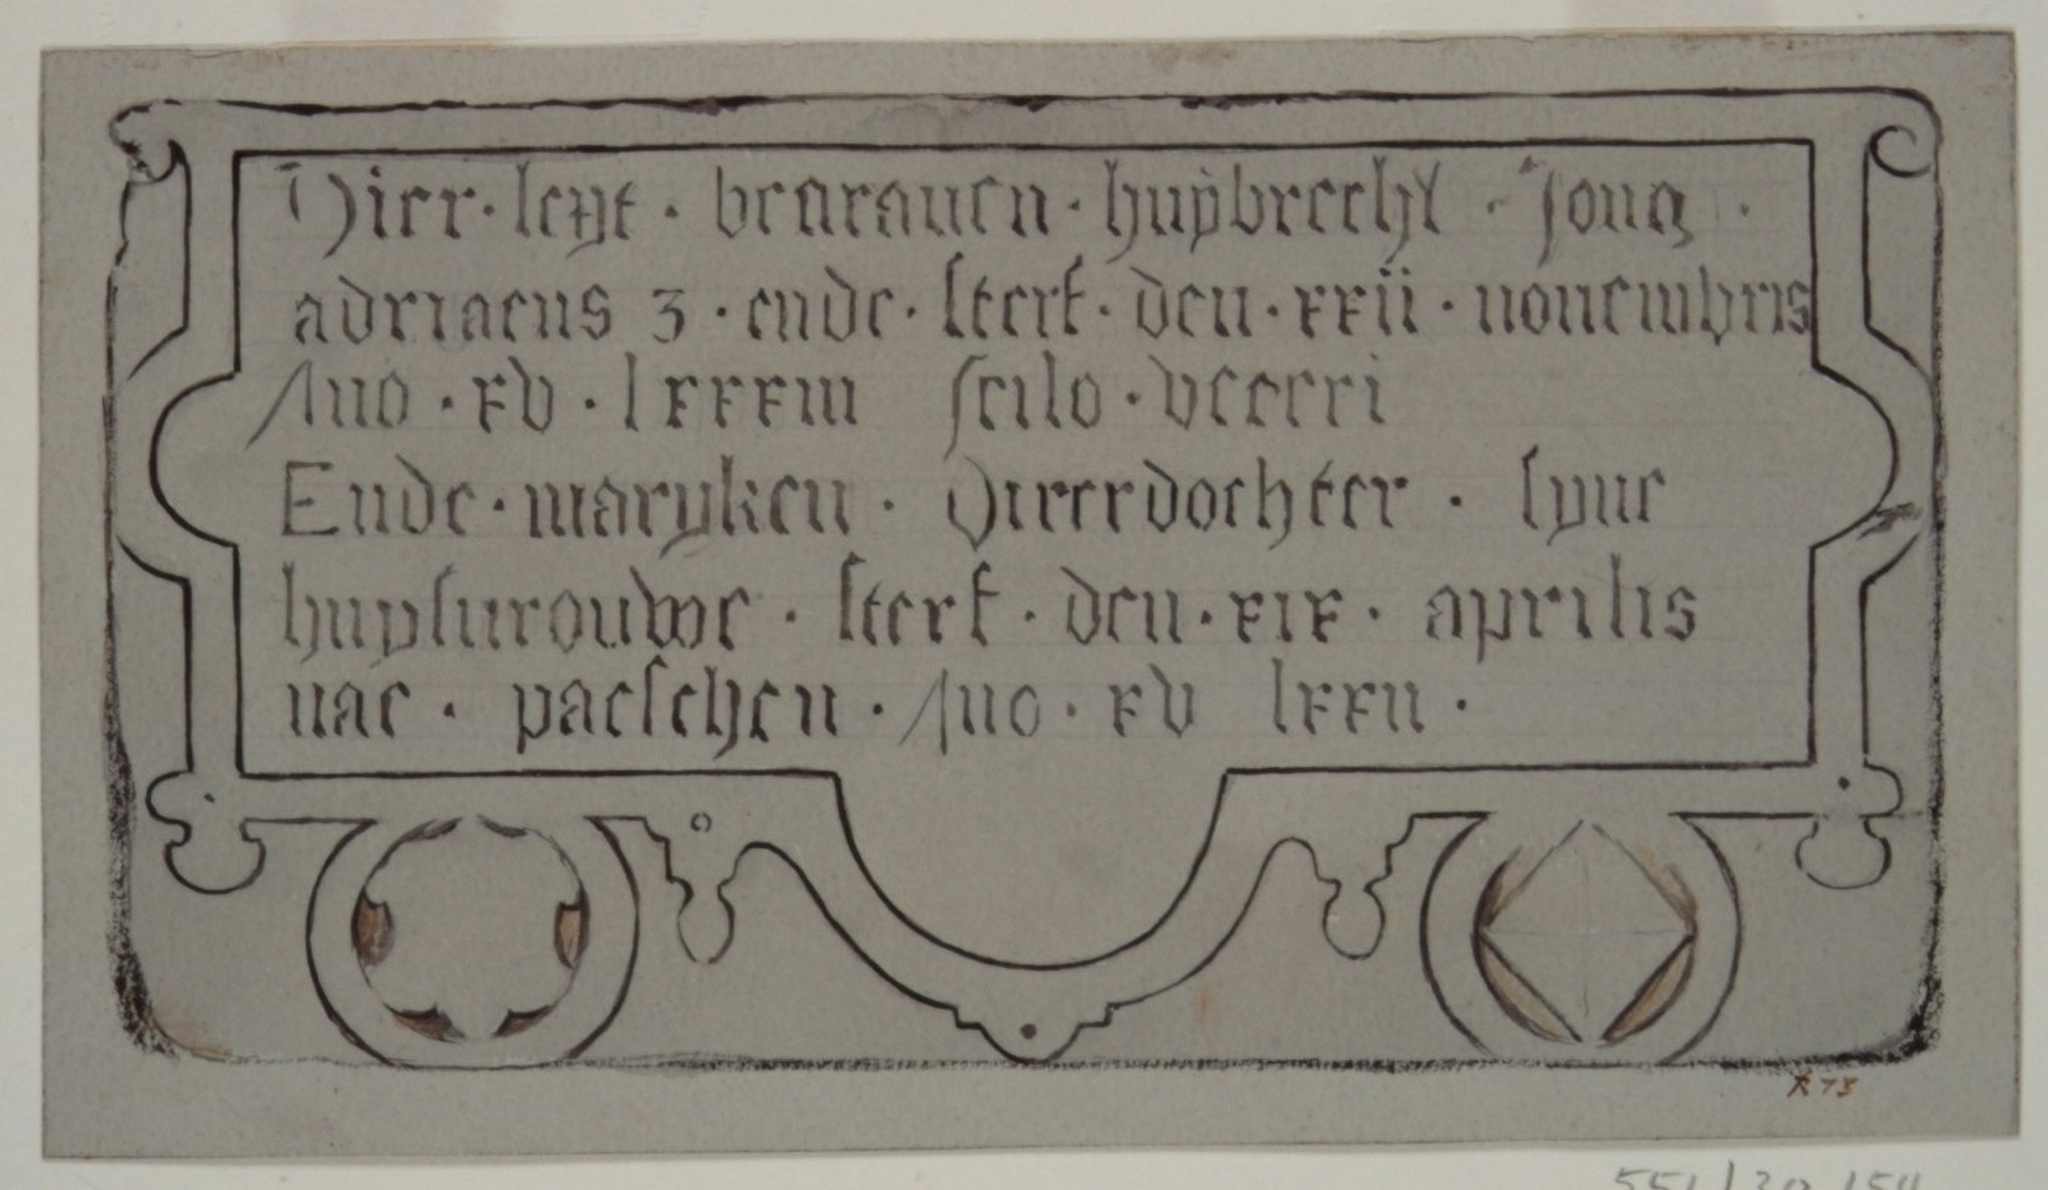 Hier · leyt · begrauen · huybrecht · Jong ·
adriaens z · ende · sterf · den · xxii · nouembris
Ano · xv · lxxxiii scilo · veteri
Ende · maryken · Pieterdochter · syne
huysurouwe · sterf · den · xix · aprilis
nae · paesschen · Ano · xv lxxii ·
R 73